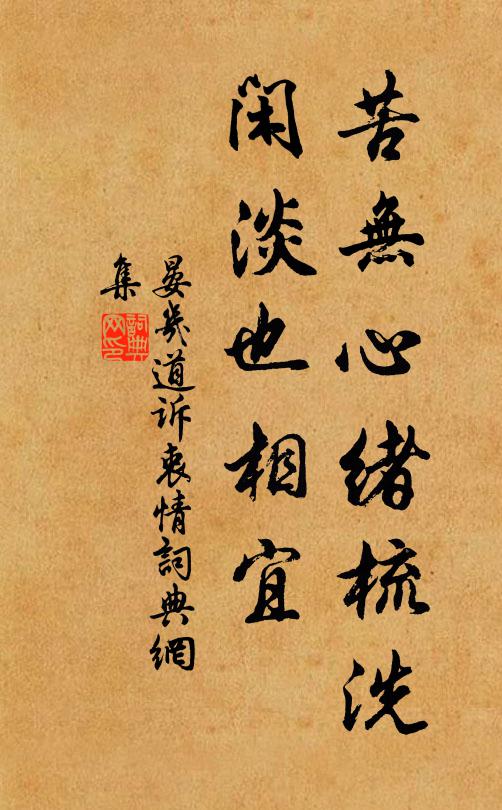 苦無心緒梳洗
閑淡也相宜
晏幾道訴衷情詞典網
集
詞典网印